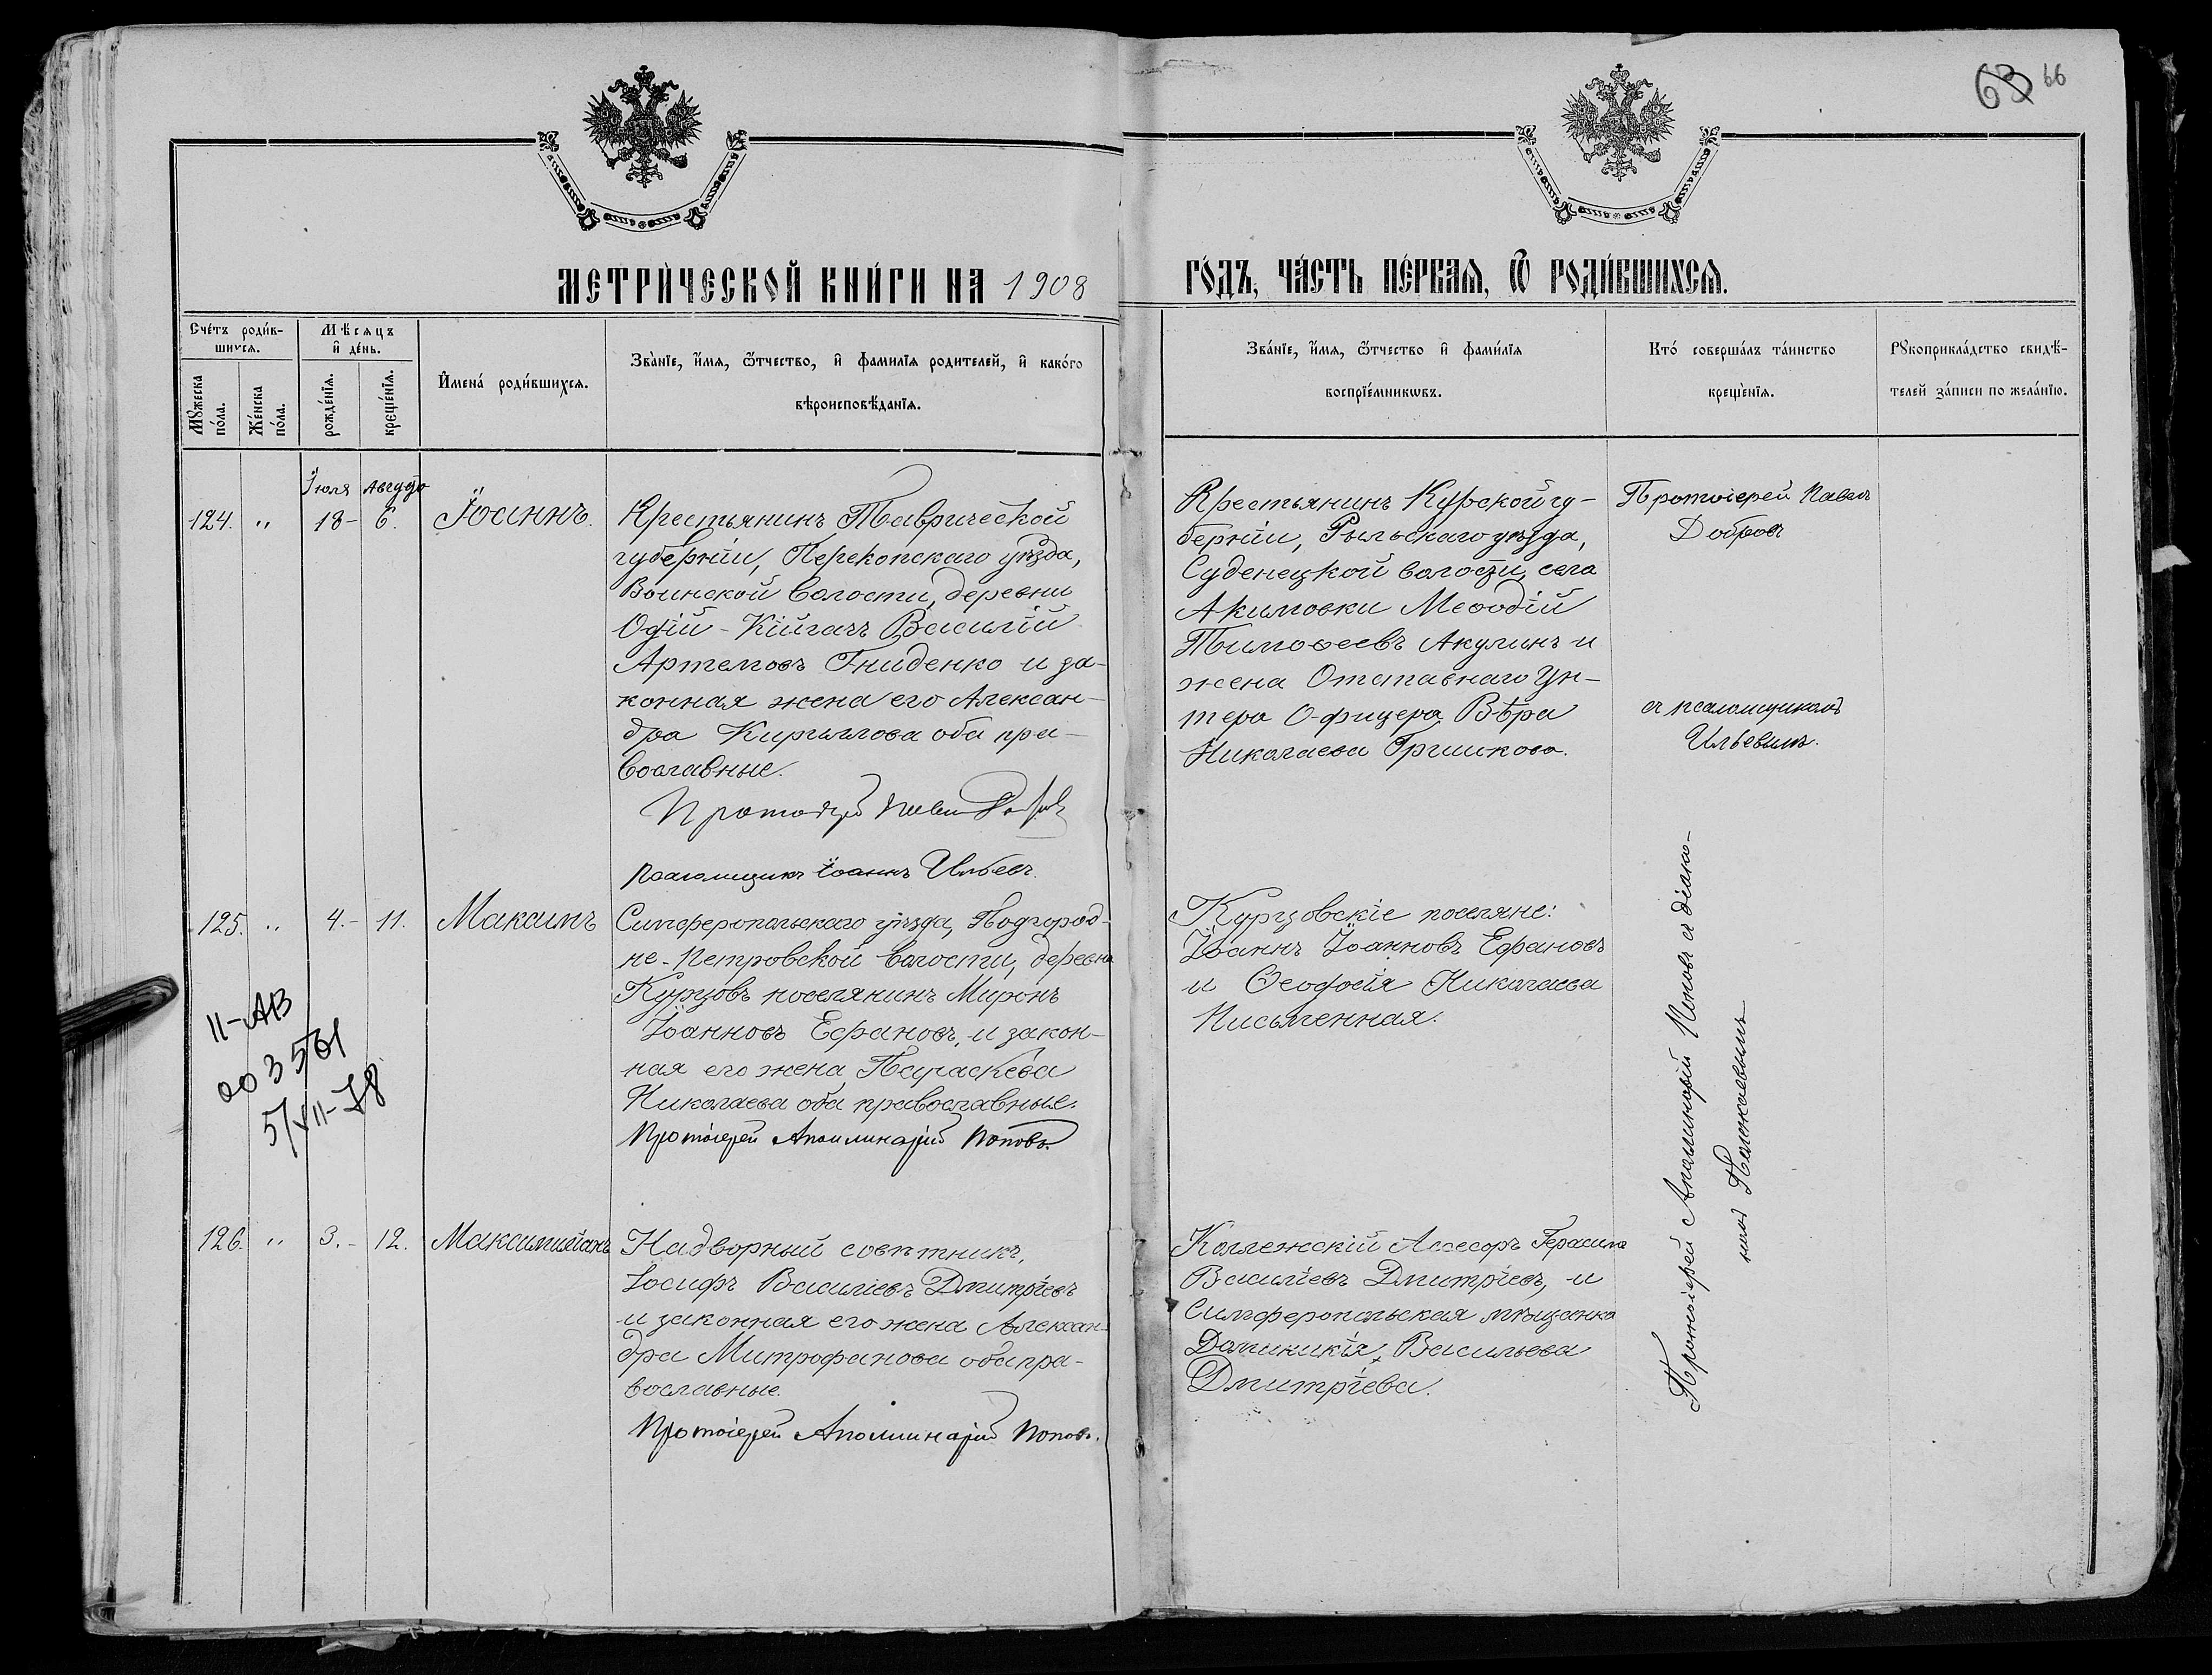 63 66
МЕТРИ́ЧЕСКОЙ КНИ́ГИ НА 1908
ГО́ДЪ, ЧА́СТЬ ПЕ́РВАЯ, Ѿ РОДИ́ВШИХСЯ.
Сче́тъ роди́в-
шихся.
Мꙋжеска
по́ла.
Же́нска
по́ла.
Мѣсяцъ
и҆ де́нь.
рожде́нїя.
креще́нїя.
И҆мена́ роди́вшихся.
Зва́нїе, и҆́мя, ѻ҆́тчество, и҆ фами́лїя родителей, и҆ како́го
вѣроисповѣ́данїя.
Зва́нїе, и҆́мя, ѻ҆́тчество и҆ фами́лїя
воспрїе́мникѡвъ.
Кто́ соверша́лъ та́инство
креще́нїя.
Рꙋкоприкла́дство свидѣ́-
телей за́писи по жела́нїю.
Іюля Августа
124. " 18- 6. Іоаннъ.
Крестьянинъ Таврической
губерніи, Перекопскаго уѣзда,
Воинской волости, деревни
Кійгачъ Василій
Артемовъ Гниденко и за-
конная жена его Алексан-
дра Кириллова оба пра-
вославные.
Протоіерей Павелъ Добровъ
Псаломщикъ Іоаннъ Ильевъ.
Крестьянинъ Курской гу-
берніи, Рыльскаго уѣзда,
волости, села
Акимовки Меѳодій
Тимоѳеевъ Акулинъ и
жена Отставнаго Ун-
теръ Офицера Вѣра
Николаева Гришкова.
Протоіерей Павелъ
Добровъ
съ псаломщикомъ
Ильевымъ.
125. " 4.- 11. Максимъ
Симферопольскаго уѣзда, Подгород-
не-Петровской волости, деревни
Курцовъ поселянинъ Миронъ
Іоанновъ Ефановъ, и закон-
ная его жена Параскева
Николаева оба православные.
Протоіерей Аполлинарій Поповъ.
Курцовскіе поселяне:
Іоаннъ Іоанновъ Ефановъ
и Ѳеодосія Николаева
Письменная.
II-АВ
003561
5/VII-78
126. " 3.- 12. Максимиліанъ
Надворный совѣтникъ,
Іосифъ Василіевъ Дмитріевъ
и законная его жена Алексан-
дра Митрофанова оба пра-
вославные.
Протоіерей Аполлинарій Поповъ.
Коллежскій Ассесоръ Герасимъ
Василіевъ Дмитріевъ, и
Симферопольская мѣщанка
Доминикія Васильева
Дмитріева.
Протоіерей Аполлинарій Поповъ съ діако-
номъ